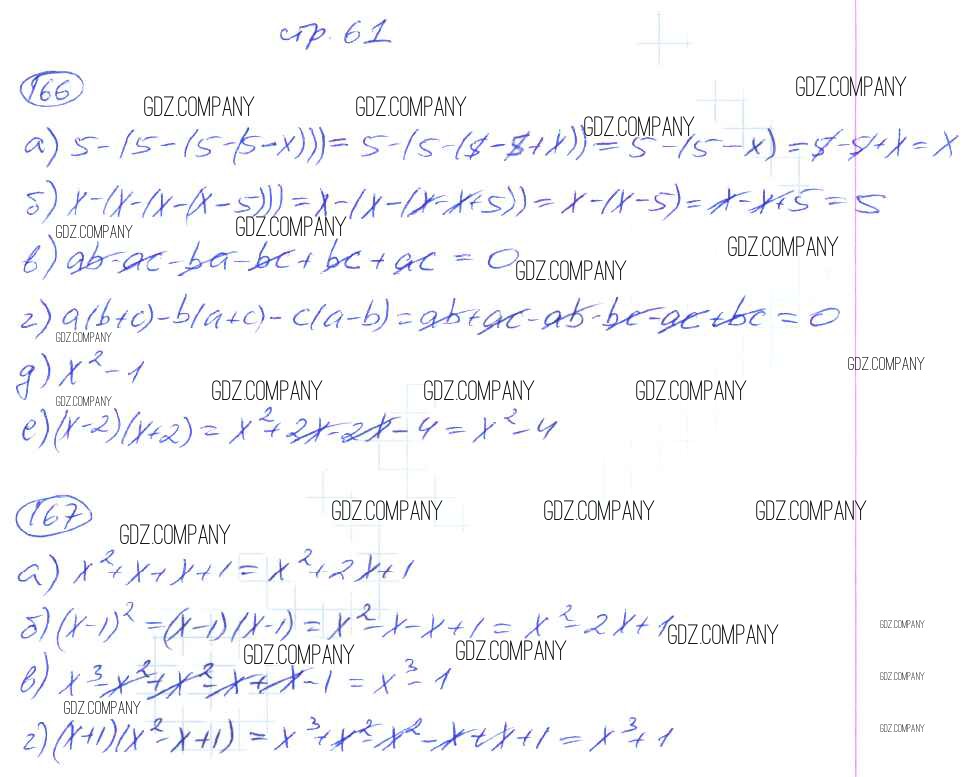 стр. 61
166
GDZ.COMPANY GDZ.COMPANY GDZ.COMPANY
GDZ.COMPANY
а) 5-(5-(5-(5-x)))= 5-(5-(5-5+x))= 5-(5-x)=5-5+x=x
б) x-(x-(x-(x-5)))=x-(x-(x-x+5))=x-(x-5)=x-x+5=5
GDZ.COMPANY GDZ.COMPANY GDZ.COMPANY
в) ab-ac-ba-bc+bc+ac=0
GDZ.COMPANY
г) a(b+c)-b(a+c)-c(a-b)=ab+ac-ab-bc-ac+bc=0
GDZ.COMPANY GDZ.COMPANY
д) x²-1
GDZ.COMPANY GDZ.COMPANY GDZ.COMPANY GDZ.COMPANY
е)(x-2)(x+2)=x²+2x-2x-4=x²-4
167
GDZ.COMPANY GDZ.COMPANY GDZ.COMPANY GDZ.COMPANY
а) x²+x+x+1=x²+2x+1
б)(x-1)²=(x-1)(x-1)=x²-x-x+1=x²-2x+1
GDZ.COMPANY GDZ.COMPANY
GDZ.COMPANY GDZ.COMPANY
в) x³-x²+x²-x+x-1=x³-1
GDZ.COMPANY
GDZ.COMPANY GDZ.COMPANY
г)(x+1)(x²-x+1)=x³+x²-x²-x+x+1=x³+1